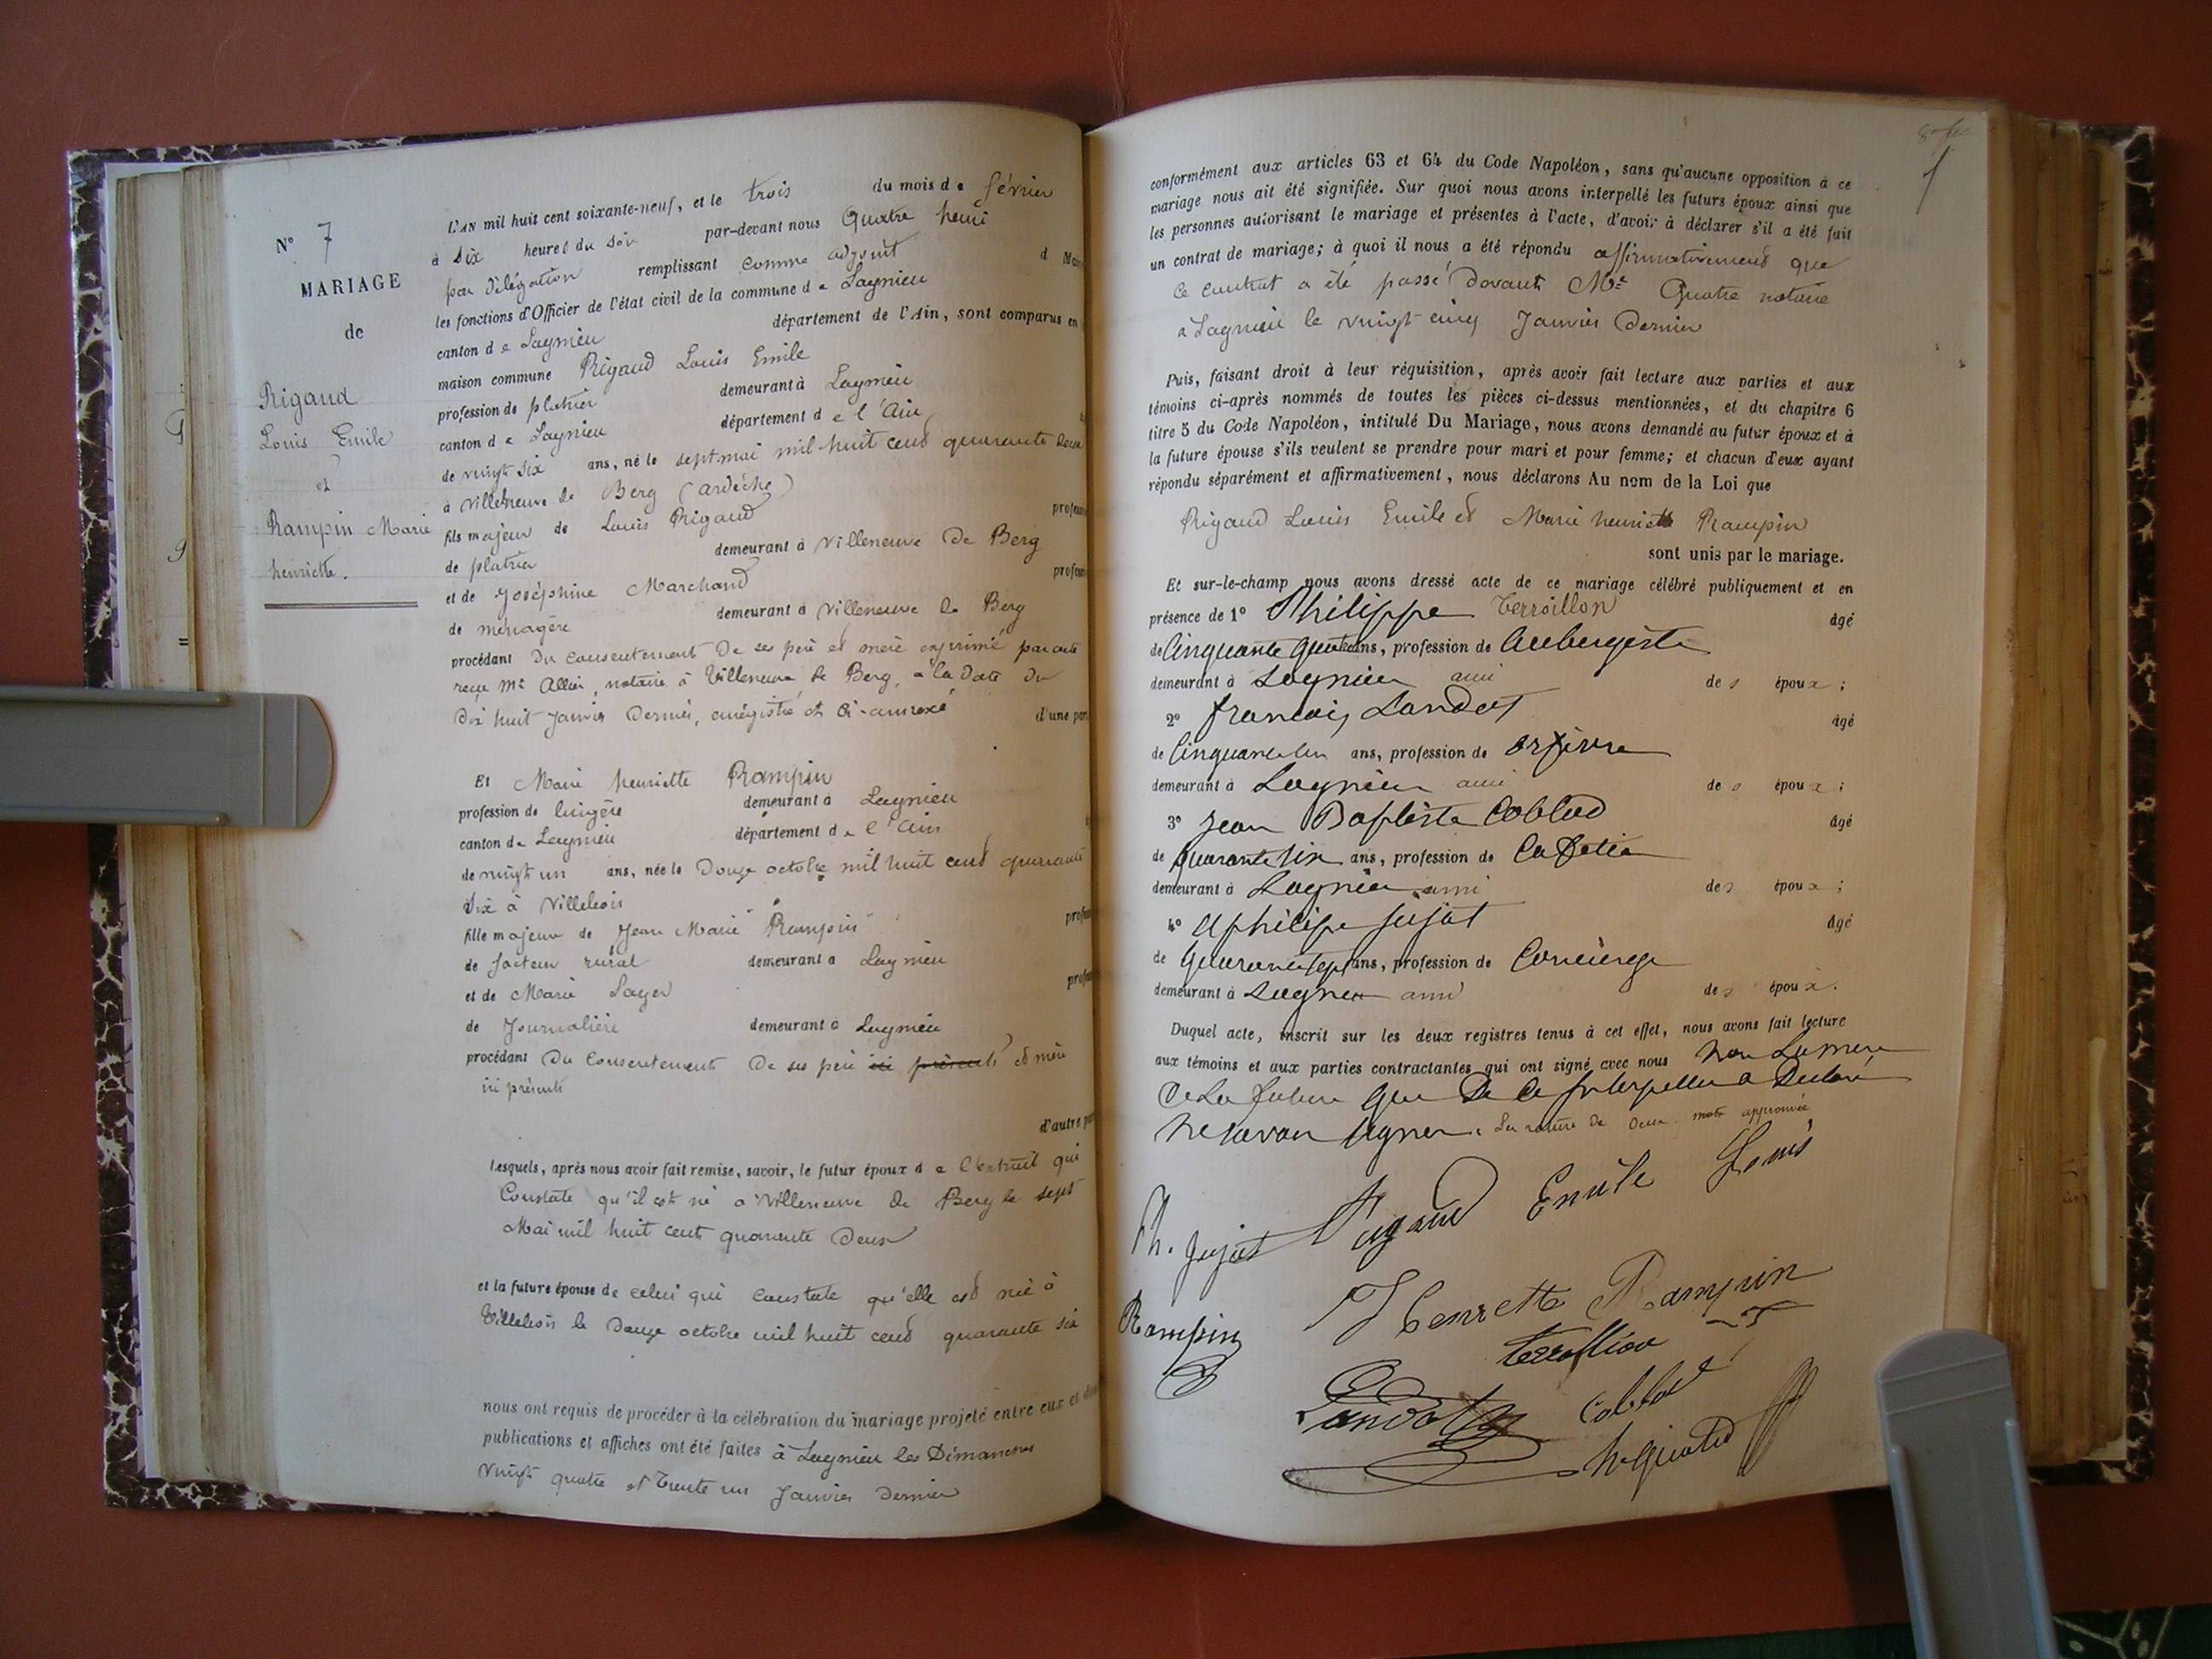 N° 7
MARIAGE
de
Rigaud
Louis Emile
et
Rampin Marie
henriette.
L'AN mil huit cent soixante-neuf, et le trois du mois de février
à Six heures du soir par-devant nous Quatre henri
par délégation remplissant comme adjoint d Mair
les fonctions d'Officier de l'état civil de la commune de Lagnieu
canton de Lagnieu département de l'Ain, sont comparus en
maison commune Rigaud Louis Emile
profession de platrier demeurant à Lagnieu
canton de Lagnieu département de l'Ain
de vingt six ans, né le sept mai mil huit cent quarante deux
à Villeneuve de Berg (ardèche)
fils majeur de Louis Rigaud profession
de platrier demeurant à Villeneuve de Berg
et de Joséphine Marchand profess
de ménagère demeurant à Villeneuve de Berg
procédant du consentement de ses père et mère exprimé par acte
reçu Mt Allier, notaire à Villeneuve de Berg, à la date du
dix huit janvier dernier, enrégistré et ci-annexé d'une part
Et Marie henriette Rampin
profession de lingère demeurant à Lagnieu
canton de Lagnieu département de l'Ain
de vingt un ans, née le Douze octobre mil huit cent quarante
Six à Villebois
fille majeure de Jean Marie Rampin profes
de facteur rural demeurant à Lagnieu
et de Marie Sayet profes
de Journalière demeurant à Lagnieu
procédant du consentement de ses père ici présents et mère
ici présents
d'autre part
Lesquels, après nous avoir fait remise, savoir, le futur époux de l'extrait qui
Constate qu'il est né à Villeneuve de Berg le sept
Mai mil huit cent quarante Deux
et la future épouse de celui qui constate qu'elle est née à
Villebois le Douze octobre mil huit cent quarante six
nous ont requis de procéder à la célébration du mariage projeté entre eux et dont
publications et affiches ont été faites à Lagnieu les Dimanches
vingt quatre et trente un janvier dernier
conformément aux articles 63 et 64 du Code Napoléon, sans qu'aucune opposition à ce
mariage nous ait été signifiée. Sur quoi nous avons interpellé les futurs époux ainsi que
les personnes autorisant le mariage et présentes à l'acte, d'avoir à déclarer s'il a été fait
un contrat de mariage; à quoi il nous a été répondu affirmativement que
ce contrat a été passé devant Mt Quatre notaire
à Lagnieu le vingt cinq Janvier dernier
Puis, faisant droit à leur réquisition, après avoir fait lecture aux parties et aux
témoins ci-après nommés de toutes les pièces ci-dessus mentionnées, et du chapitre 6
titre 5 du Code Napoléon, intitulé Du Mariage, nous avons demandé au futur époux et à
la future épouse s'ils veulent se prendre pour mari et pour femme; et chacun d'eux ayant
répondu séparément et affirmativement, nous déclarons Au nom de la Loi que
Rigaud Louis Emile et Marie henriette Rampin
sont unis par le mariage.
Et sur-le-champ nous avons dressé acte de ce mariage célébré publiquement et en
présence de 1° Philippe Terroillon âgé
de Cinquante quatre ans, profession de Aubergiste
demeurant à Lagnieu ami des époux;
2° francois Landot âgé
de Cinquante un ans, profession de orfèvre
demeurant à Lagnieu ami des époux;
3° Jean Baptiste Coblod âgé
de quarante six ans, profession de Cafetier
demeurant à Lagnieu ami des époux;
4° philipe Jujat âgé
de quarante sept ans, profession de Concierge
demeurant à Lagnieu ami des époux.
Duquel acte, inscrit sur les deux registres tenus à cet effet, nous avons fait lecture
aux témoins et aux parties contractantes qui ont signé avec nous non La mere
de La future que de ce Interpellee a Déclaré
ne savoir signer. La rature de deux mots approuvée
Ph. Jujat Rigaud Emile Louis
Rampin Henrette Rampin
Terroillion
Landot Coblod
h. Quatre